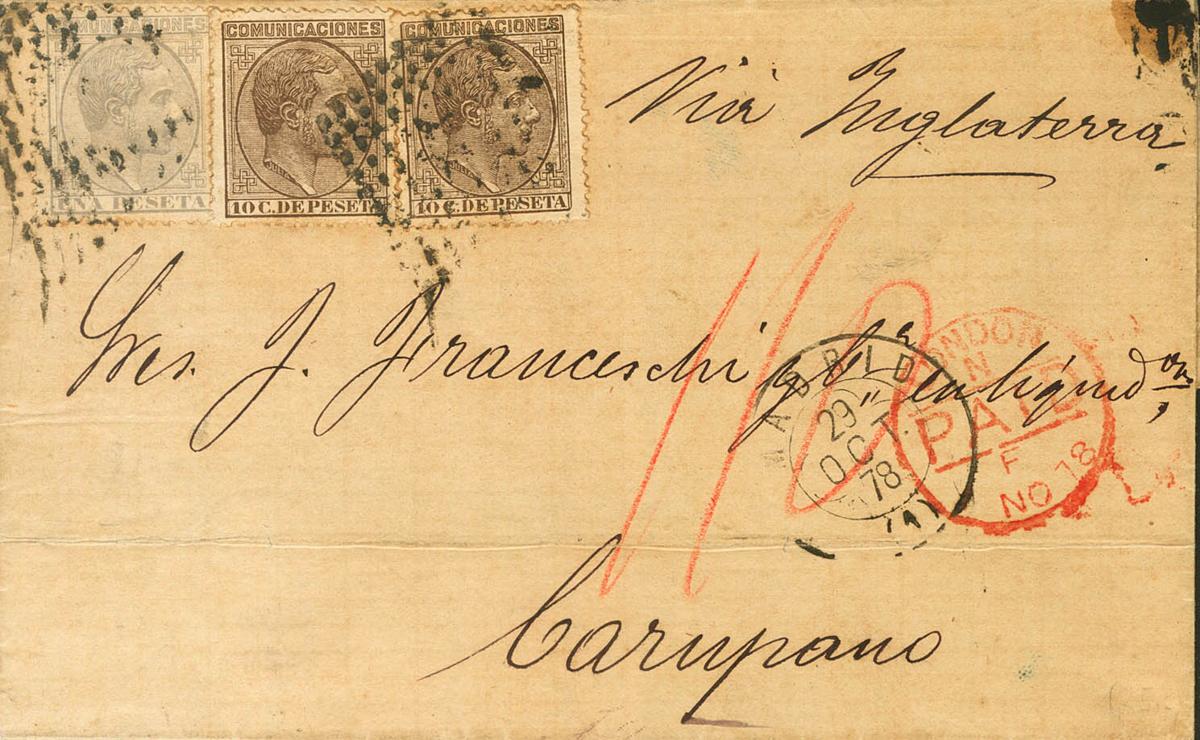 COMUNICACIONES
UNA PESETA
COMUNICACIONES
10 C. DE PESETA
COMUNICACIONES
10 C. DE PESETA
Via Inglaterra.
Sres. J. Franceschi y Cª en liquid.on,
MADRID
29
OCT.
78
(1)
LONDON
N
PAID
F
NO 18
Carupano